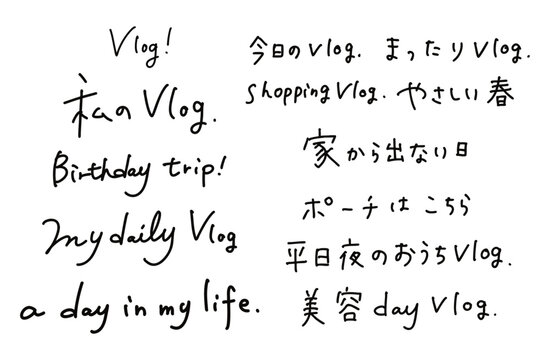 Vlog!
私のVlog.
Birthday trip!
my daily Vlog
a day in my life.
今日のvlog. まったりVlog.
shopping Vlog. やさしい春
家から出ない日
ポーチは こちら
平日夜のおうちVlog.
美容 day Vlog.